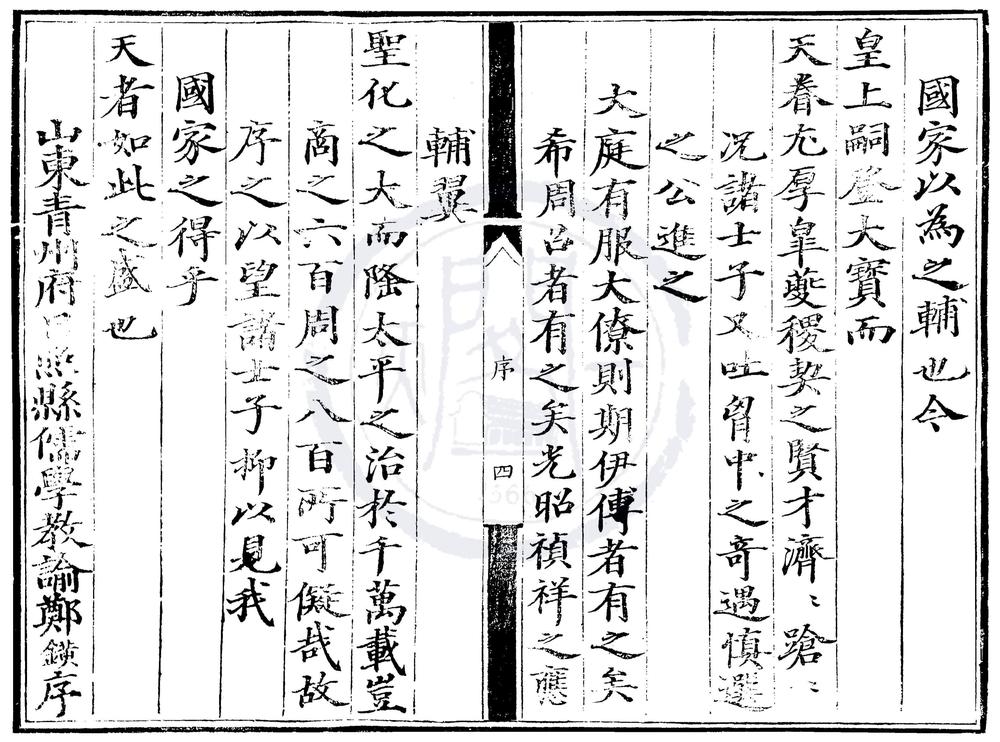 國家以為之輔也今
皇上嗣登大寶而
天眷尤厚皐夔稷契之賢才濟〻蹌〻
況諸士子又吐胷中之奇遇慎選
之公進之
大庭有服大僚則期伊傅者有之矣
希周呂者有之矣光昭禎祥之應
序
四
輔翼
聖化之大而隆太平之治於千萬載豈
商之六百周之八百所可儗哉故
序之以望諸士子抑以見我
國家之得乎
天者如此之盛也
山東青州府日照縣儒學教諭鄭鐄序